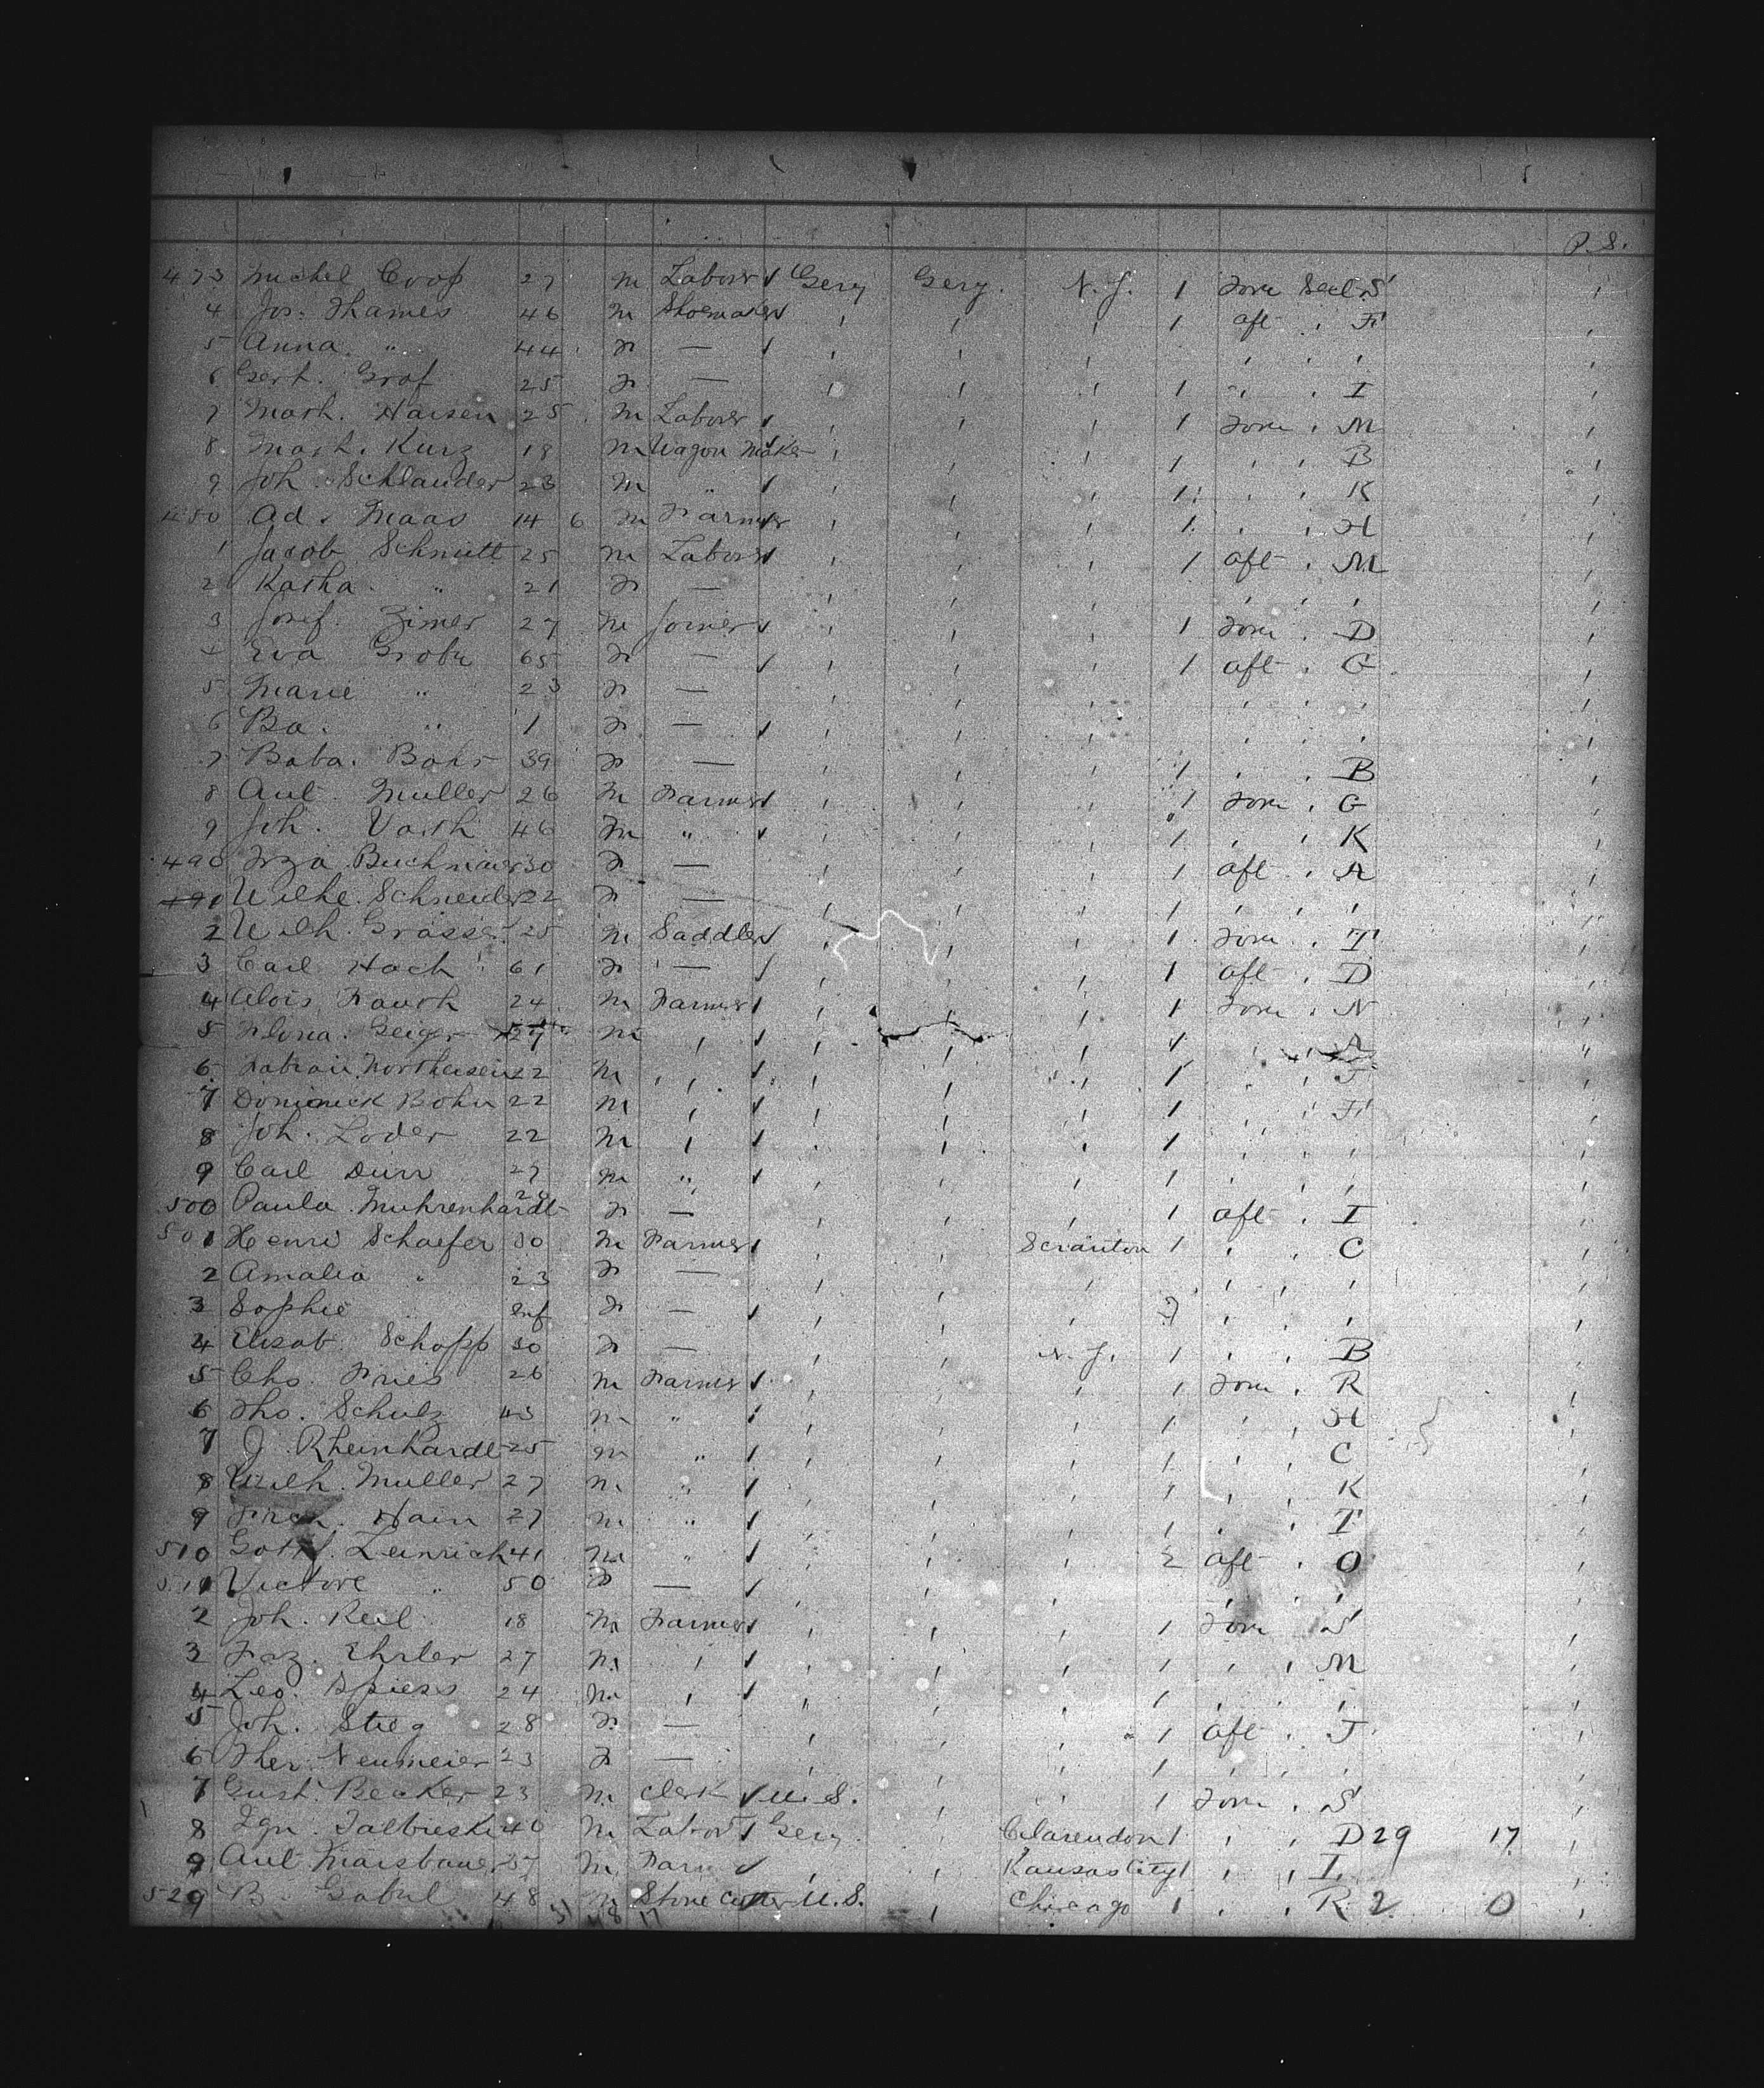 P. S.
473 Michel Coop 27 m Laborer √ Gery Gery. N. J. 1 Forw Secl. S
4 Jos. Thames 46 m Shoemaker √ , , , 1 aft , F
5 Anna " 44 f — √ , , , , , ,
6 Gert. Graf 25 f — , , , 1 " , I
7 Math. Hansen 25 m Laborer √ , , , 1 Forw , M
8 Math. Kurz 18 m Wagon Maker √ , , , 1 , , B
9 Joh. Schlauder 23 m " √ , , , 1 , , K
480 Ad. Maas 14 6 m Farmer √ , , , 1 , , H
1 Jacob Schmitt 25 m Laborer √ , , , 1 aft , M
2 Katha. " 21 f — , , , , , ,
3 Josef. Zimer 27 m Joiner √ , , , 1 Forw , D
4 Eva Grobe 65 f — √ , , , 1 aft , G
5 Marie " 23 f — , , , , , ,
6 Ba. " 1 f — √ , , , , , ,
7 Baba. Bohr 39 f — , , , 1 , , B
8 Ant. Muller 26 m Farmer √ , , , 1 Forw , G
9 Joh. Varth 46 m " √ , , , 1 , , K
490 Frza. Buchmaier 30 f — , , , 1 aft , A
491 Wilhe. Schneider 22 f — , , , 1 , , ,
2 Wilh. Grasser 25 m Saddler √ , , , 1 Forw , T
3 Carl Hach 61 f — √ , , , 1 aft , D
4 Alois Rauch 24 m Farmer √ , , , 1 Forw , N
5 Geiger 27 m , √ , , , 1 ,
6 22 m , , √ , , , 1 , , F
7 Dominick Bohn 22 m , √ , , , 1 , F
8 Joh. Loder 22 m , √ , , , 1 , , ,
9 Carl Durr 27 m " √ , , , 1 , , ,
500 Paula Muhrenhardt 28 f — , , , 1 aft , I
501 Henri Schaefer 30 m Farmer √ , , Scranton 1 , , C
2 Amalia " 23 f — , , , , , ,
3 Sophie " Inf f — √ , , , , , ,
4 Elisab. Schopp 30 f — , , N. J. 1 , , B
5 Chs. Fries 26 m Farmer √ , , , 1 Forw , R
6 Tho. Schulz 43 m " √ , , , 1 , , H
7 J. Rheinhardt 25 m " √ , , , 1 , , C
8 Wilh. Muller 27 m " √ , , , 1 , , K
9 Hain 27 m " √ , , , 1 , , T
510 Gottf. Leinrich 41 m " √ , , , 2 aft , O
511 Victore " 50 f — √ , , , , , ,
2 Joh. Reil 18 m Farmer √ , , , 1 Forw S
3 Fraz. Ehrler 27 m , √ , , , 1 , , M
4 Leo. Spiess 24 m , √ " , , 1 , , ,
5 Joh. Stieg 28 f — , , , 1 aft , J
6 Ther. Neumeier 23 f — , , , 1 , , ,
7 Gust. Becker 23 m Clerk √ U. S. , , 1 Forw , S
8 Ign. 40 m Labor √ Gery , Clarendon 1 , , D 29 17 ,
9 Ant. Maisbauer 37 m Farm √ , , Kansas City 1 , , I ,
529 B. Gabul 48 m Stone Cutter U. S. , Chicago 1 , , R 2 0 ,